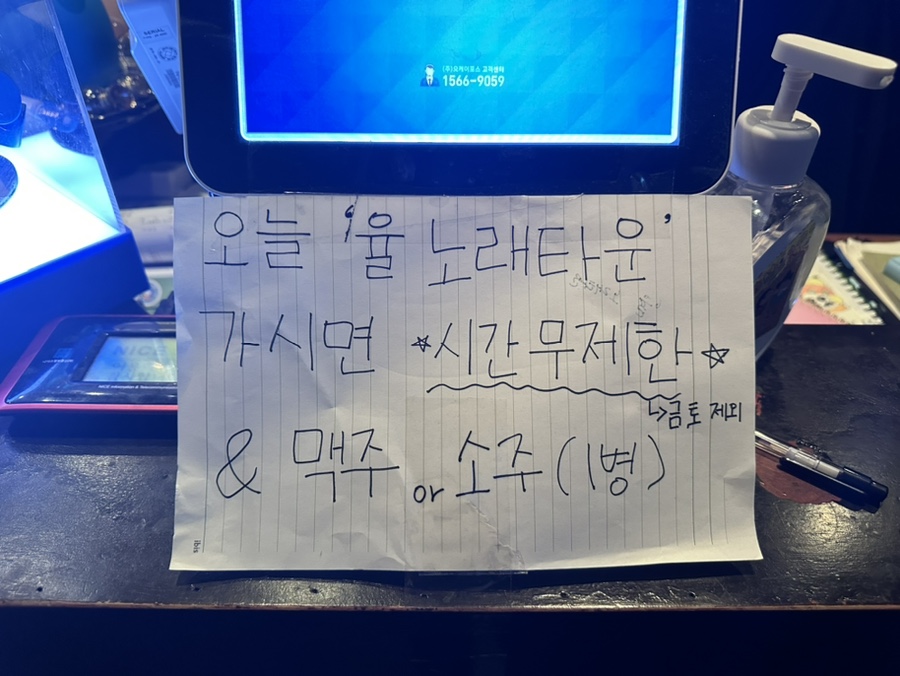 (주)오케이포스 고객센터
1566-9059
오늘 '율 노래타운'
가시면 ☆시간 무제한☆
↳금토 제외
& 맥주 or 소주 (1병)
ibis
NICE